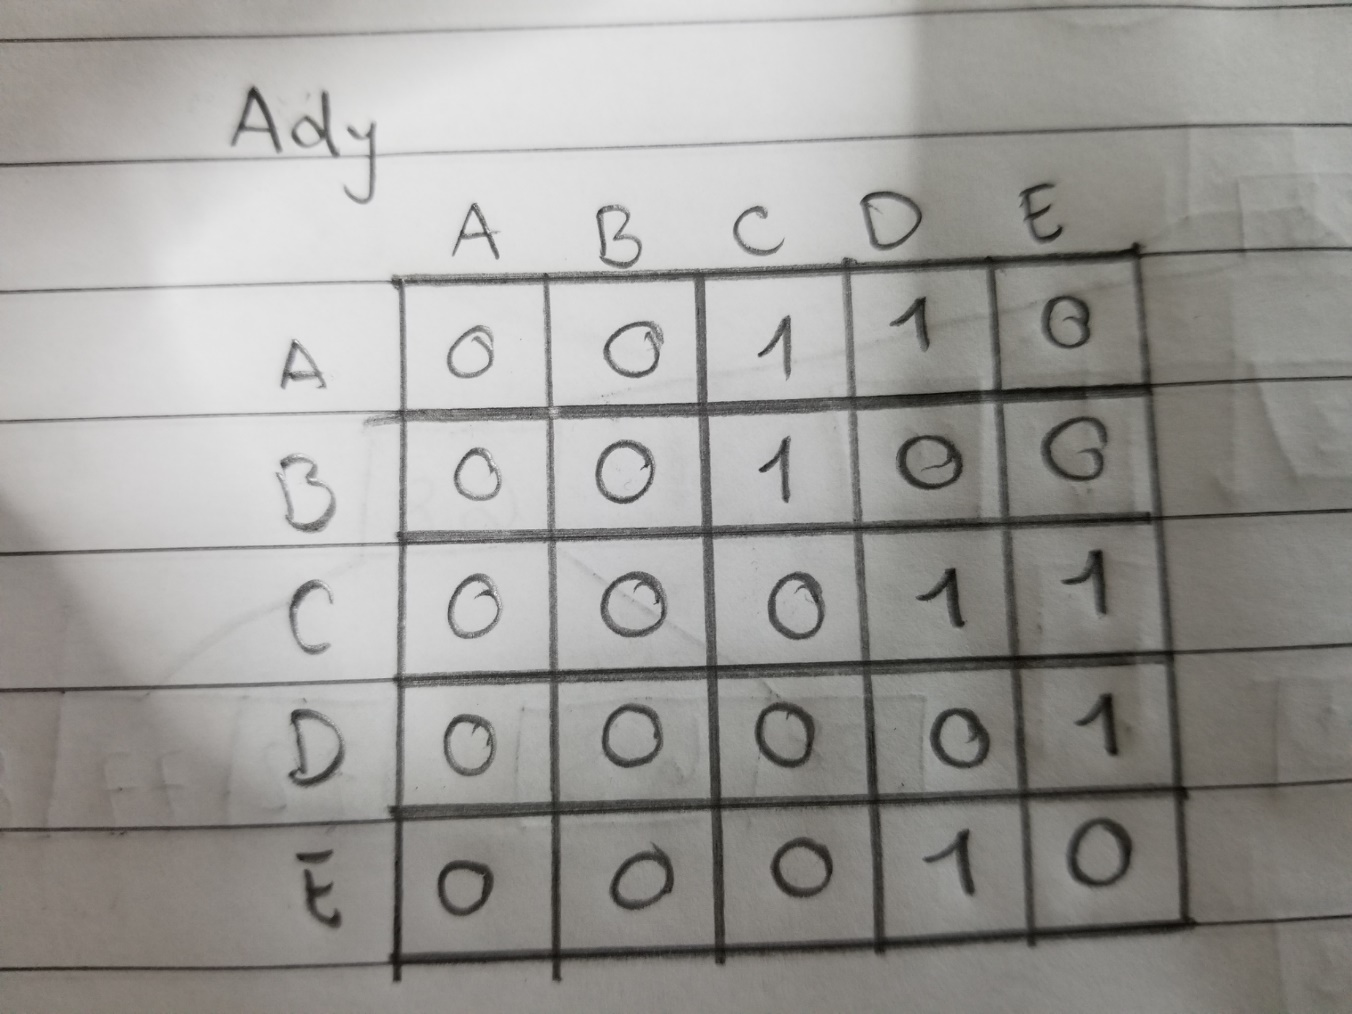 Ady
A B C D E
A 0 0 1 1 0
B 0 0 1 0 0
C 0 0 0 1 1
D 0 0 0 0 1
E 0 0 0 1 0